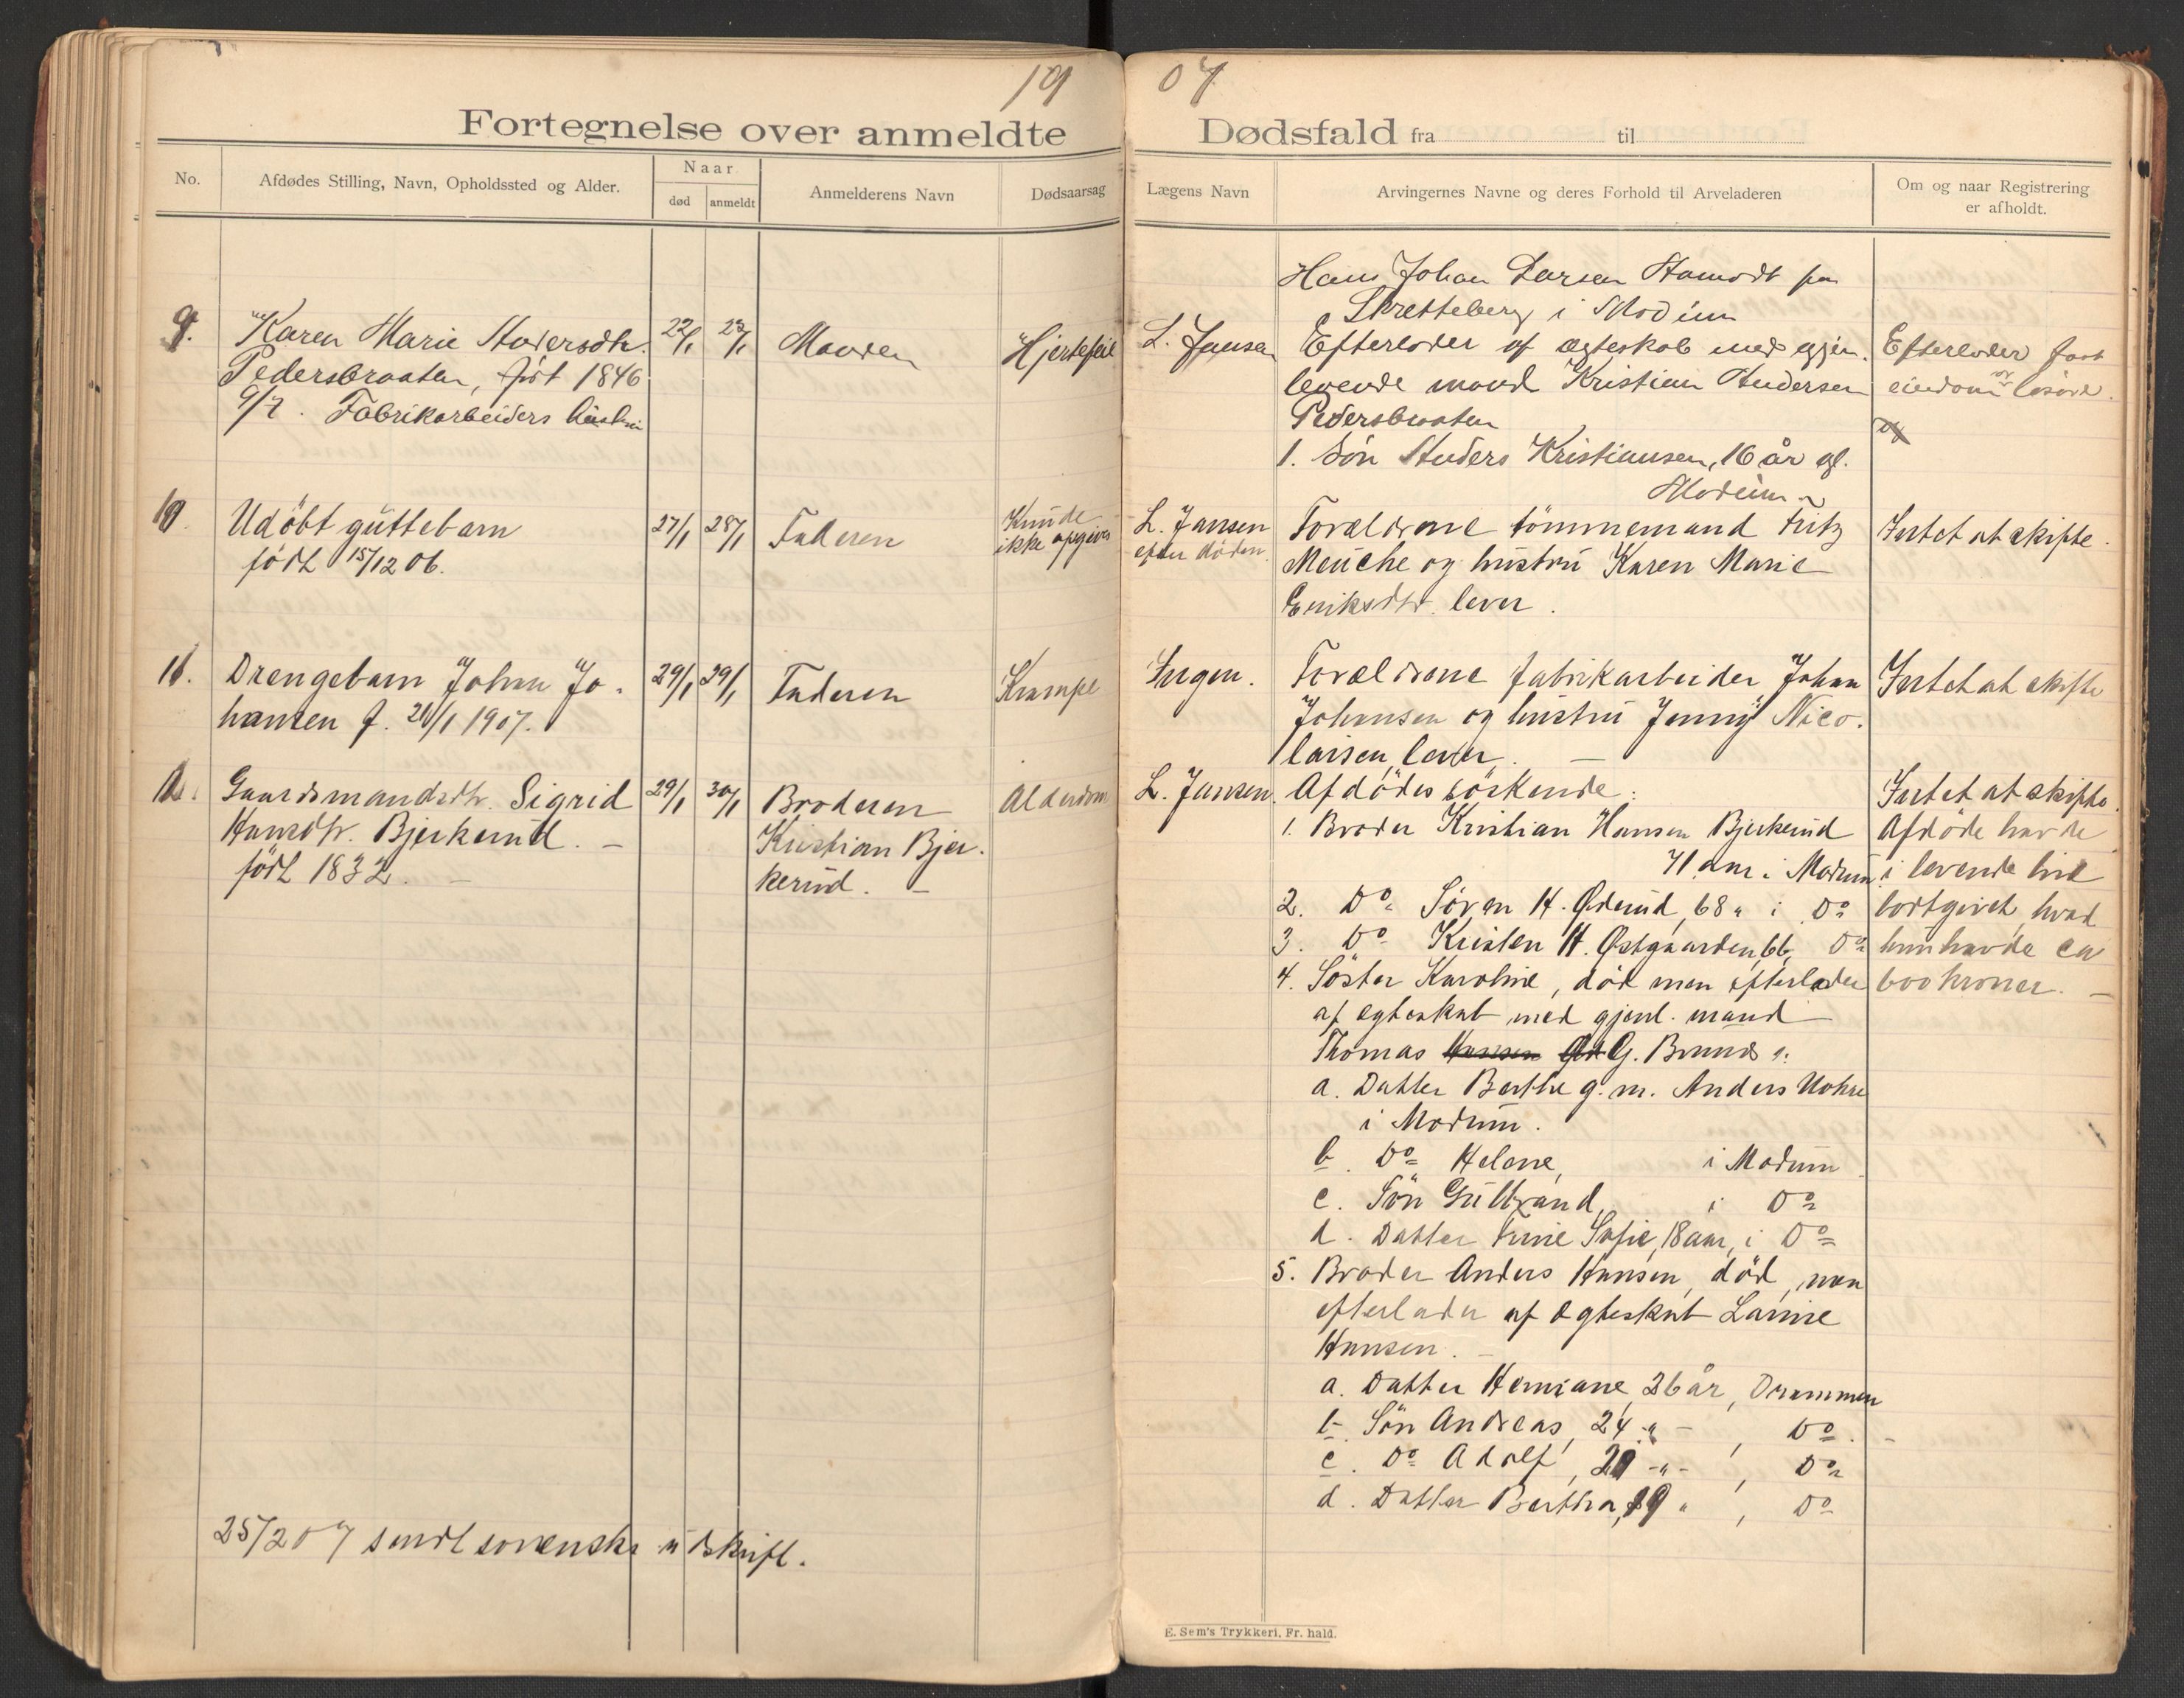 19 07
Fortegnelse over anmeldte Dødsfald fra til
No.
Afdødes Stilling, Navn, Opholdssted og Alder.
Naar
død
anmeldt
Anmelderens Navn
Dødsaarsag
Lægens Navn
Arvingernes Navne og deres Forhold til Arveladeren
Om og naar Registrering
er afholdt.
Hans Johan Larsen
Skretteberg i Modum
9.
Karen Marie Andersdtr.
Pedersbraaten, født 1846
9/7. Fabrikarbeiders hustru
22/1
23/1
Manden
Hjertefeil
L. Jansen
Efterlader af ægteskab med gjen-
levende mand Kristian Andersen
Pedersbraaten
1. Sön Anders Kristiansen, 16 år gl.
Modum
Efterlader fast
eiendom og løsøre.
10.
Udöbt guttebarn
född 15/12 06.
27/1
28/1
Faderen
Kunde
ikke opgives
L. Jansen
efter döden
Forældrene tömmemand Fritz
Meuche og hustru Karen Marie
Eriksdtr. lever.
Intet at skifte.
11.
Drengebarn Johan Jo-
hansen f. 21/1 1907.
29/1
29/1
Faderen
Krampe
Ingen.
Forældrene fabrikarbeider Johan
Johansen og hustru Jenny Nico-
laisen, lever. —
Intet at skifte
12.
Gaardsmandsdtr. Sigrid
Hansdtr. Bjerkerud. —
född 1832. —
29/1
30/1
Broderen
Kristian Bjer-
kerud. —
Alderdom
L. Jansen.
Afdödes söskende:
1. Broder Kristian Hansen Bjerkerud
71 aar i Modum
2. Do Sören H. Öderud, 68 " i Do
3. Do Kristen H. Østgaarden, 66, Do
4. Söster Karoline, död men efterlader
af egteskab med gjenl. mand
Thomas Hansen G. Brunds:
a. Datter Berthe g. m. Anders
i Modum.
b. Do Helene, i Modum
c. Sön Gulbrand, i Do
d. Datter Sofie, 18 aar, i Do
5. Broder Anders Hansen, död, men
efterlader af egteskab Laurise
Hansen. —
a. Datter Hemiane, 26 år, Drammen
b. Sön Andreas, 24 -"- , Do. -
c. Do Adolf, 20 -"- , Do
d. Datter Berthra, 19 " , Do
Intet at skifte.
Afdöde havde
i levende live
bortgivet, hvad
hun havde ca
600 kroner. —
25/2 07 sendt sorensk. udskrift.
E. Sem's Trykkeri, Fr. hald.